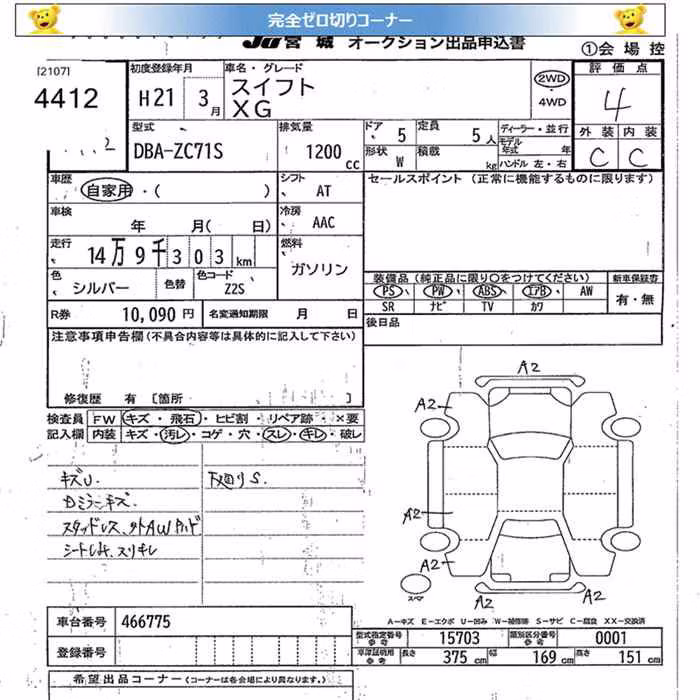 完全ゼロ切りコーナー
JU宮 城 オークション出品申込書
①会 場 控
[2107]
4412
初度登録年月
H21 3月
車名・グレード
スイフト
XG
2WD
4WD
評 価 点
4
外 装 内 装
C C
型式
DBA-ZC71S
排気量
1200cc
ドア 5
定員 5人
形状 W
積載 kg
ディーラー・並行
モデル年式 年
ハンドル 左・右
車歴
自家用・( )
シフト AT
セールスポイント (正常に機能するものに限ります)
車検
年 月( 日)
冷房 AAC
走行
14万9千303km
燃料
ガソリン
色
シルバー
色替
色コード
Z2S
装備品(純正品に限り○をつけてください)
新車保証書
PS PW ABS エアB AW
有・無
SR ナビ TV カワ
R券 10,090 円
名変通知期限 月 日
後日品
注意事項申告欄(不具合内容等は具体的に記入して下さい)
修復歴 有 [箇所 ]
検査員 FW キズ・飛石・ヒビ割・リペア跡・×要
記入欄 内装 キズ・汚レ・コゲ・穴・スレ・キレ・破レ
キズU.
Dミラーキズ.
スタッドレス、外AW
シートしみ、スリキレ
下廻りS.
A2
A2 A2
A2
A2 A2
A2 A2
スペア
A-キズ E-エクボ U-凹み W-補修跡 S-サビ C-腐食 XX-交換済
車台番号 466775
登録番号
型式指定番号参考 15703
類別区分番号参考 0001
車庫証明用参考 長さ 375cm 幅 169cm 高さ 151cm
希望出品コーナー(コーナーは各会場により異なります。)